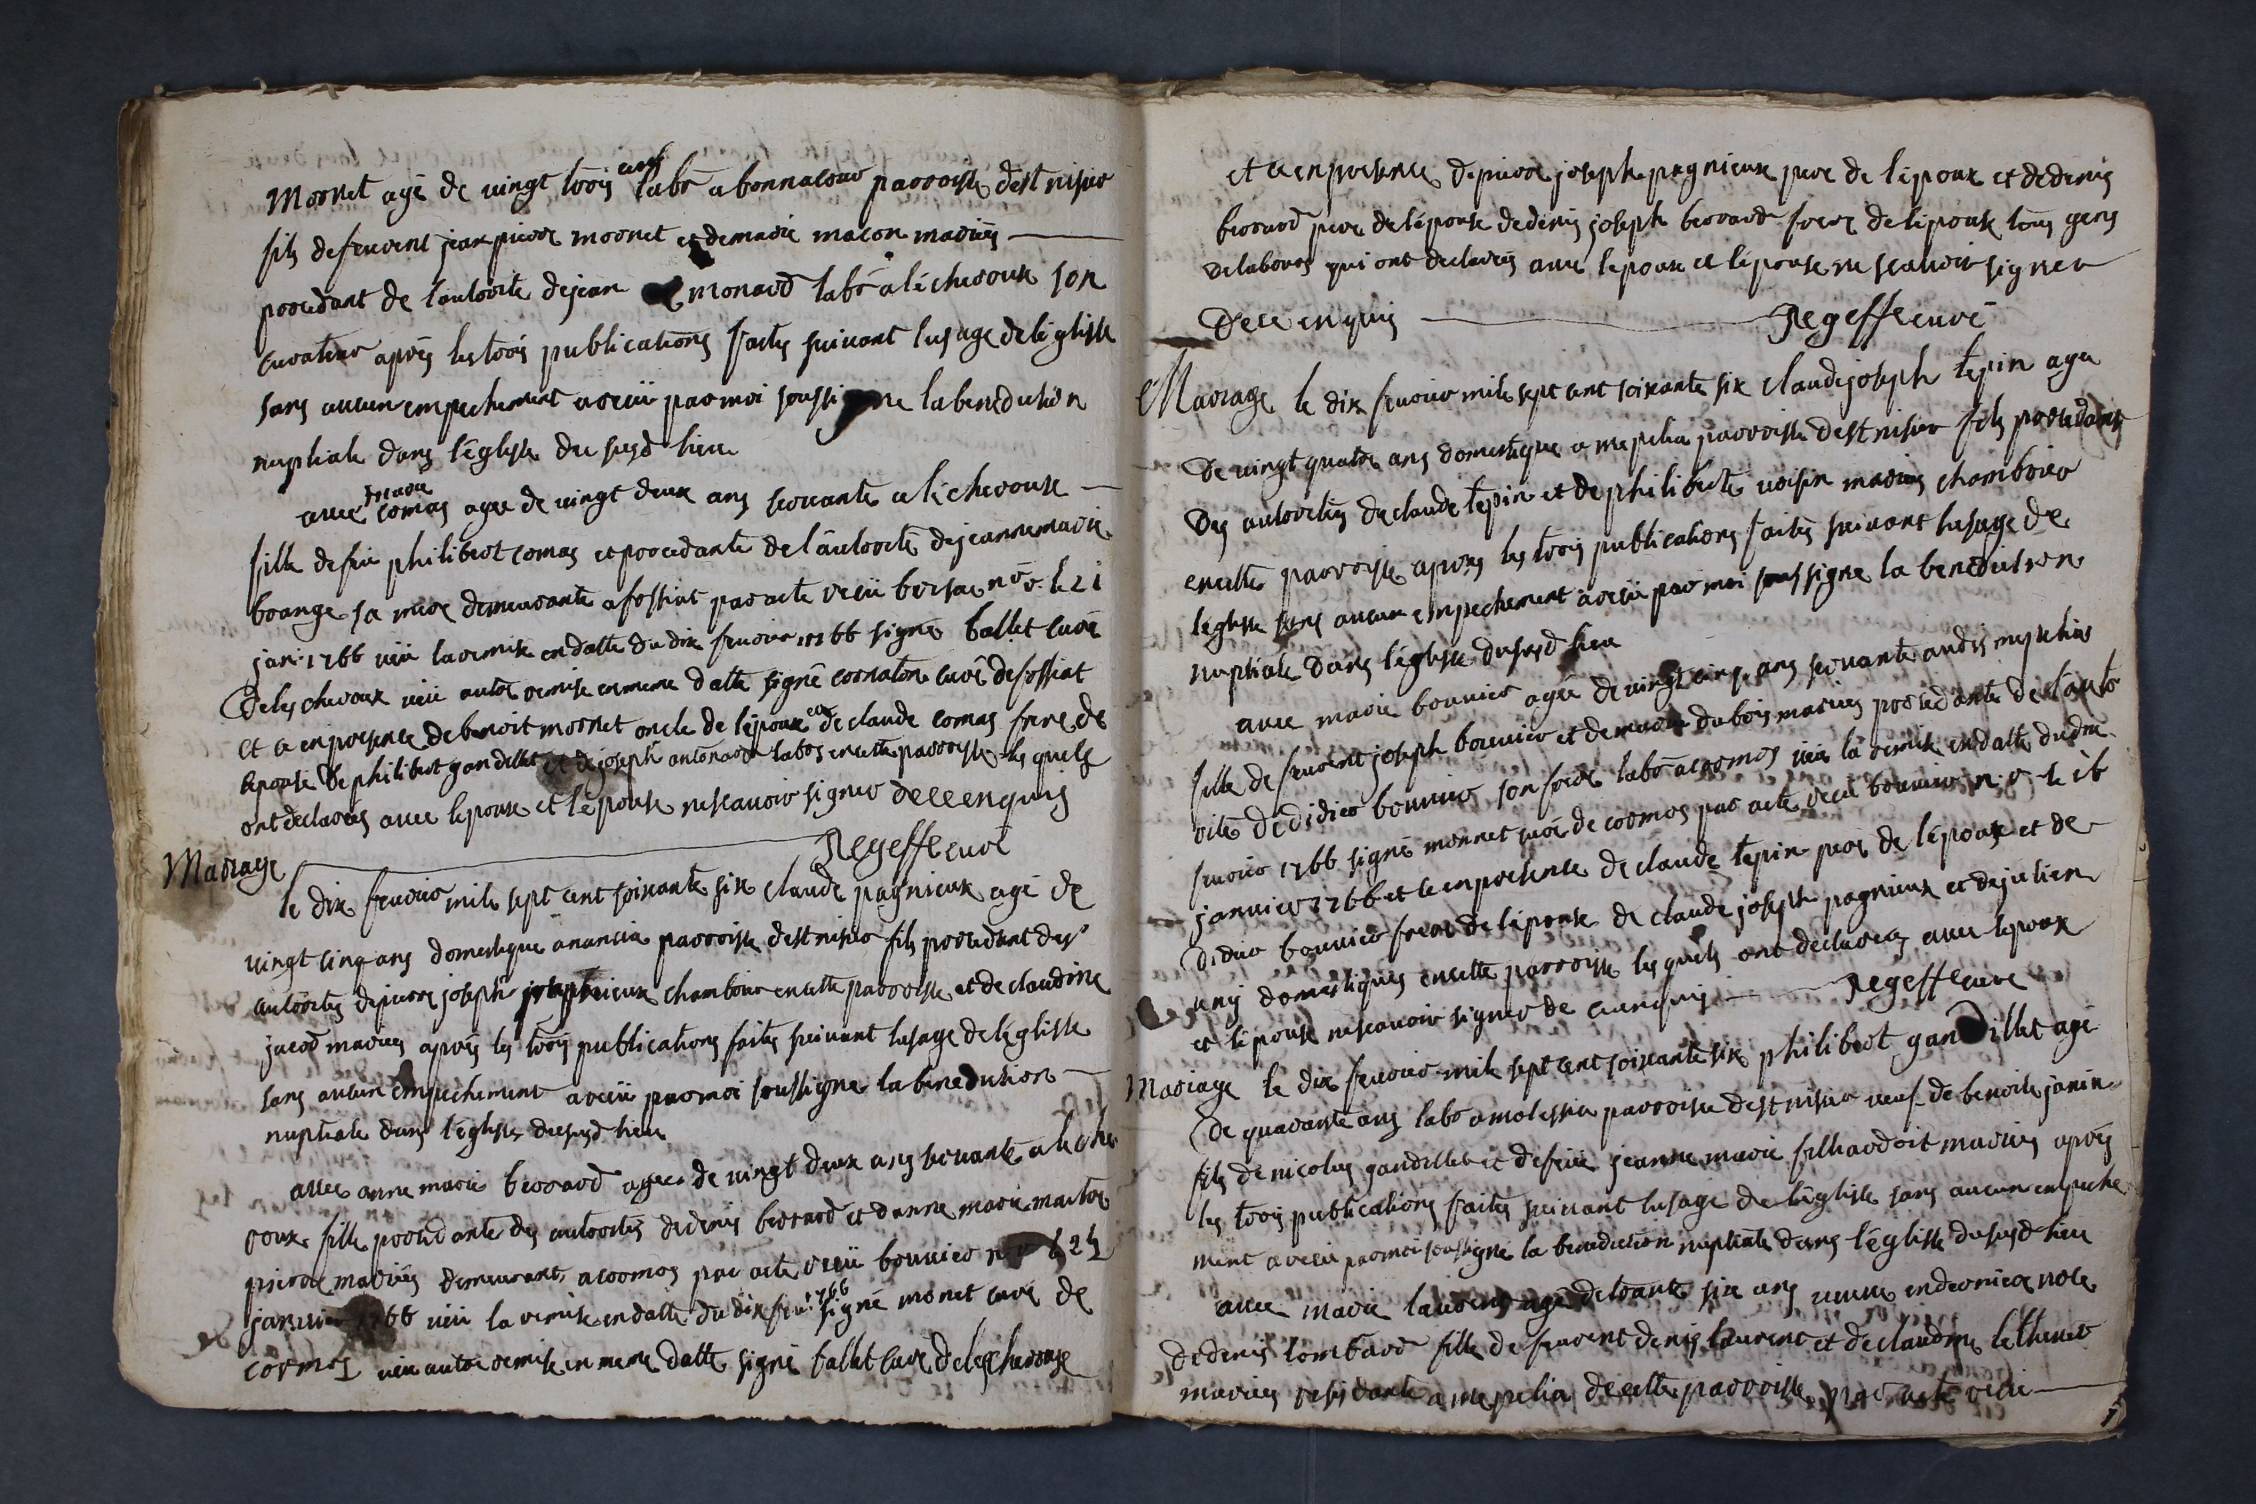 Mornet agé de vingt trois ans labr a bonnacour parroisse de st nisier
fils de feu vent jean pierre mornet et de marie macon mariés
procedant de l'autorite de jean monard labr a léscheroux son
curateur aprés les trois publications faites suivant l'usage de léglisse
sans aucun empechement a reçu par moi soussigne la benediction
nuptiale dans léglisse du susd lieu
avec comas ageé de vingt deux ans servante a léscheroux
fille de feu philibert comas et procedante de l'autorité de jeanne marie
brange sa mere demeurante a fossiat par acte reçu no. r. le 21
janr 1766 veü la remise en datte du dix fevrier 1766 signé ballet curé
de lescheroux veü autre remise en meme datte signé cornaton curé de fossiat
et ce en presence de benoit mornet oncle de l'époux de claude comas frere de
l'epouse de philibert gandillet et de joseph labrs en cette parroisse les quels
ont declarés avec l'epoux et l'epouse ne scavoir signer de ce enquis
Regeffe curé
Mariage
le dix fevrier mile sept cent soixante six claude pagnieux agé de
vingt cinq ans domestique a parroisse de st nisier fils procedant des
autorités de pierre joseph chambrier en cette parroisse et de claudine
jacod mariés aprés les trois publications faites suivant l'usage de léglisse
sans aucun empechement a reçu par moi soussigne la benediction
nuptiale dans l'églisse du susd lieu
avec anne marie berrard ageé de vingt deux ans servante a lesche
roux fille procedante des autorités de denis berrard et danne marie
pierre mariés demeurants a cormos par acte reçu bouvier
janvier 1766 veü la remise en datte du dix fevr 1766 signé monet curé de
cormos veü autre remise en meme datte signé ballet curé de lescheroux
et ce en presence de pierre joseph pagnieux pere de l'époux et de denis
berrard pere de l'épouse de denis joseph berrard frere de l'épouse tous gens
de labours qui ont declarés avec l'epoux et l'épouse ne scavoir signer
de ce enquis Regeffe curé
Mariage le dix fevrier mile sept cent soixante six claude joseph tepin agé
de vingt quatre ans domestique a mepelia parroisse de st nisier fils procedant
des autorités de claude tepin et de philiberte voisin mariés chambrier
en cette parroisse aprés les trois publications faites suivant l'usage de
léglisse sans aucun empechement a reçu par moi soussigne la benediction
nuptiale dans l'églisse du susd lieu
avec marie bouvier ageé de vingt cinq ans servante
fille de feu vent joseph bouvier et de marie dubois mariés procedante de l'auto
rité de didier bouvier son frere labr a cormos veü la remise en datte du dix
fevrier 1766 signé monnet curé de cormos par acte reçu bouvier n. r. le 16
janvier 1766 et ce en presence de claude tepin pere de l'époux et de
didier bouvier frere de l'épouse de claude joseph pagnieux et de julien
domestiques en cette parroisse les quels ont declarés avec l'epoux
et l'épouse ne scavoir signer de ce enquis Regeffe curé
Mariage le dix fevrier mile sept cent soixante six philibert gandillet agé
de quarante ans labr a molessia parroisse de st nisier veuf de benoite janin
fils de nicolas gandillet et de feüe jeanne marie mariés aprés
les trois publications faites suivant l'usage de l'églisse sans aucun empeche
ment a reçu par moi soussigné la benediction nuptiale dans l'églisse du susd lieu
avec marie laurent agé de trante six ans veuve en derniere noce
de denis lombard fille de feu vent denis laurent et de claudine
mariés residante a mepelia de cette parroisse par acte reçu